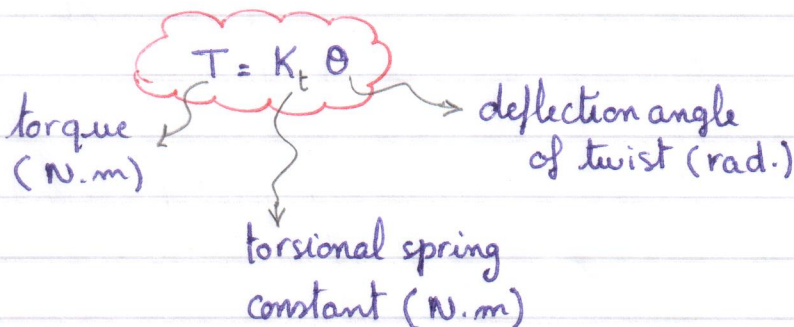 T = K_t θ
torque
(N.m)
deflection angle
of twist (rad.)
torsional spring
constant (N.m)